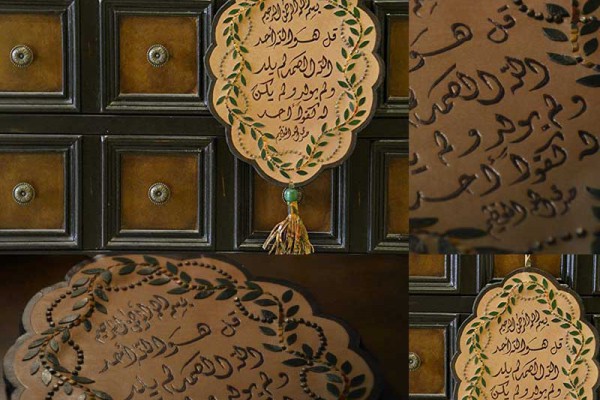 بسم الله الرحمن الرحيم
قل هو الله احد
الله الصمد لم يلد
ولم يولد ولم يكن
له كفوا احد
صدق الله العظيم
قل هو
الله الصمد
ولم يولد ولم
له كفوا احد
صدق الله العظيم
بسم الله الرحمن الرحيم
قل هو الله احد
الله الصمد لم يلد
ولم يولد
بسم الله الرحمن الرحيم
قل هو الله احد
الله الصمد لم يلد
ولم يولد ولم يكن